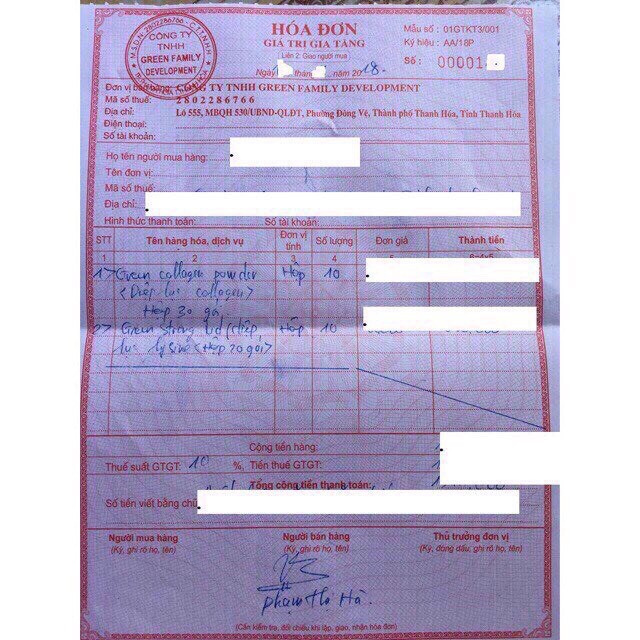 HÓA ĐƠN
GIÁ TRỊ GIA TĂNG
Liên 2: Giao người mua
Mẫu số : 01GTKT3/001
Ký hiệu : AA/18P
Số : 00001
M.S.D.N: 2802286766 - C.T.T.N.H.H
CÔNG TY
TNHH
GREEN FAMILY
DEVELOPMENT
Ngày thá năm 2018.
Đơn vị bán hàng: CÔNG TY TNHH GREEN FAMILY DEVELOPMENT
Mã số thuế: 2802286766
Địa chỉ: Lô 555, MBQH 530/UBND-QLĐT, Phường Đông Vệ, Thành phố Thanh Hóa, Tỉnh Thanh Hóa
Điện thoại:
Số tài khoản:
Họ tên người mua hàng:
Tên đơn vị:
Mã số thuế:
Địa chỉ:
Hình thức thanh toán: Số tài khoản:
STT Tên hàng hóa, dịch vụ Đơn vị tính Số lượng Đơn giá Thành tiền
1 2 3 4 5 6=4x5
1> Green collagen powder Hộp 10
<Diệp lục collagen>
Hộp 30 gói
2> Green strong kid (diệp Hộp 10
lục lysine <Hộp 20 gói>
Cộng tiền hàng:
Thuế suất GTGT: 10 %, Tiền thuế GTGT:
Tổng cộng tiền thanh toán:
Số tiền viết bằng chữ
Người mua hàng Người bán hàng Thủ trưởng đơn vị
(Ký, ghi rõ họ, tên) (Ký, ghi rõ họ, tên) (Ký, đóng dấu, ghi rõ họ, tên)
Phạm Thị Hà.
(Cần kiểm tra, đối chiếu khi lập, giao, nhận hóa đơn)